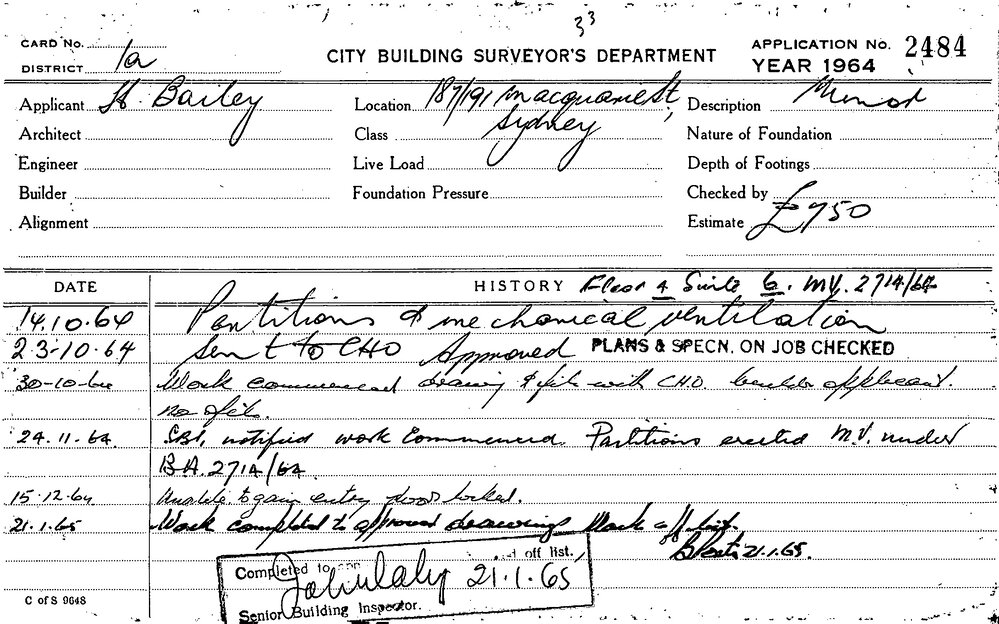 33
CARD No.
DISTRICT 1a
CITY BUILDING SURVEYOR'S DEPARTMENT
APPLICATION No. 2484
YEAR 1964
Applicant H. Bailey
Location 187/191 Macquarie St,
Sydney
Description Minor
Architect
Class
Nature of Foundation
Engineer
Live Load
Depth of Footings
Builder
Foundation Pressure
Checked by
Alignment
Estimate £750
DATE
HISTORY Floor 4 Suite 6. M.V. 2714/64
14.10.64 Partitions & mechanical ventilation
23-10-64 Sent to CHO Approved PLANS & SPECN. ON JOB CHECKED
30-10-64 Work commenced drawing & file with CHO. builder applicant.
no file.
24.11.64. notified work commenced. Partitions erected M.V. under
B.A. 2714/64
15-12-64 Unable to gain entry door locked.
21.1.65 Work completed to approved drawings Mark off list.
21.1.65.
Completed to off list.
21.1.65
Senior Building Inspector.
C of S 9648